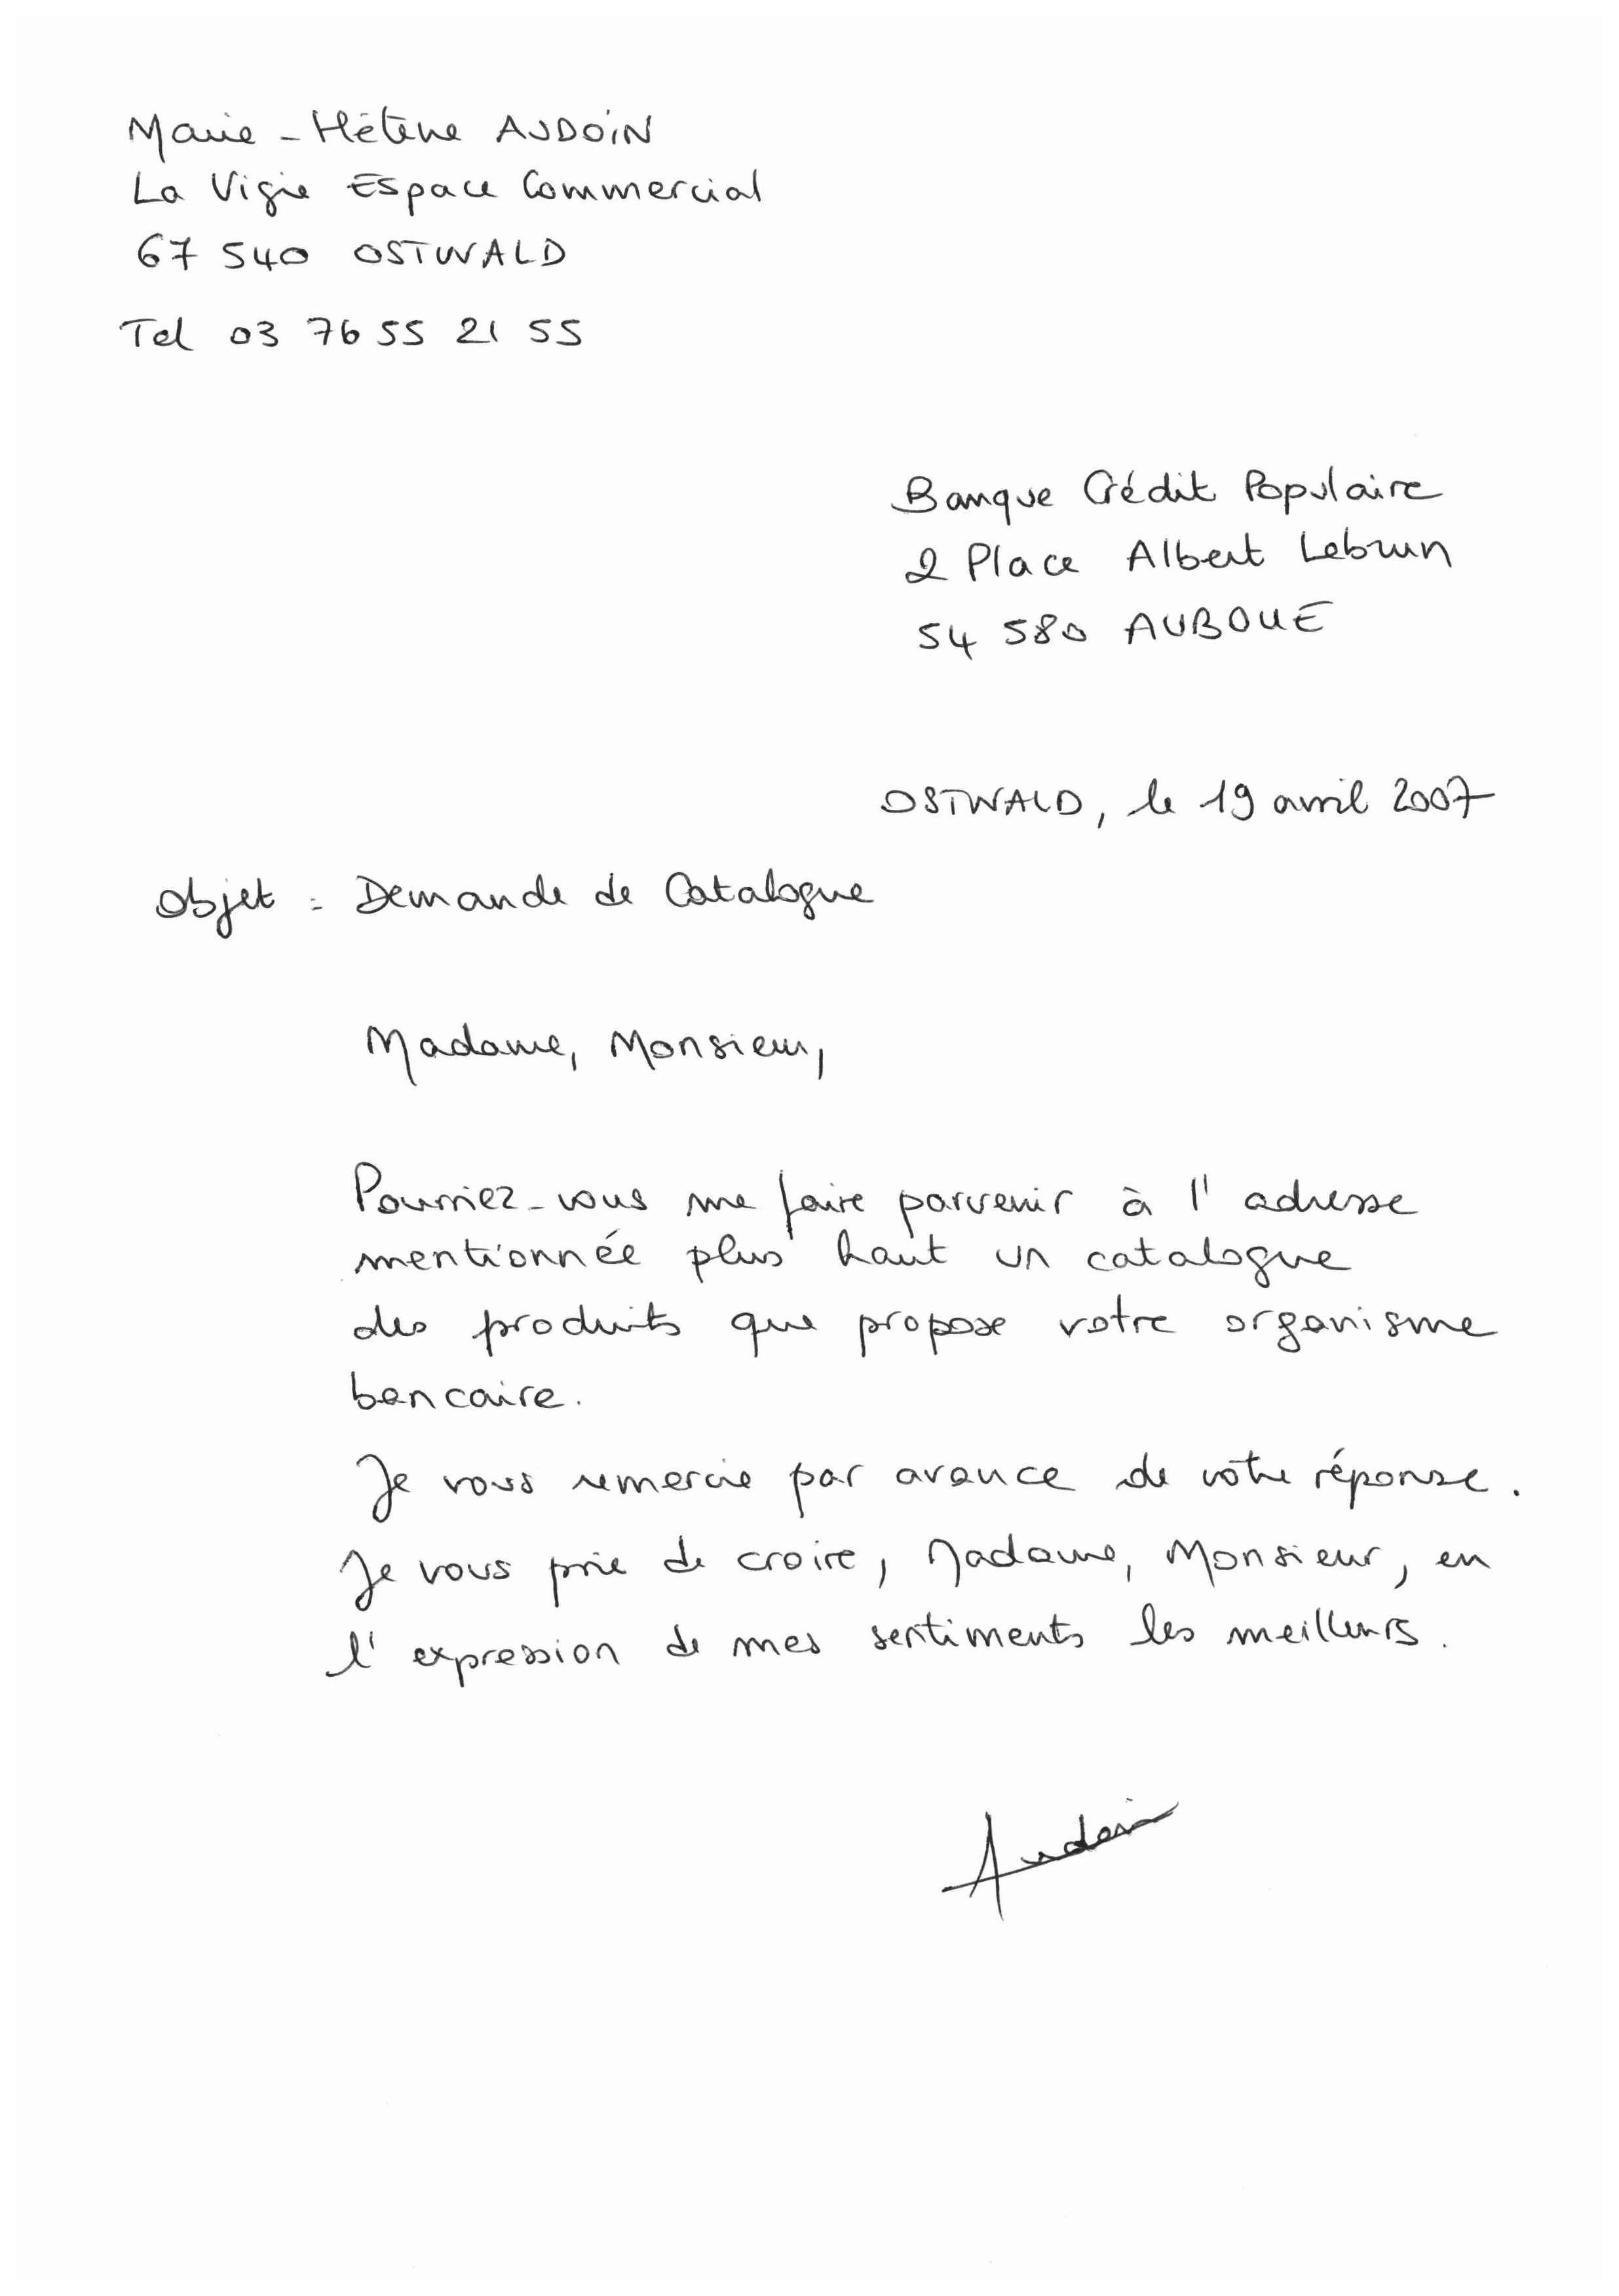 Marie-Hélène AUDOIN
La Vigie Espace Commercial
67 540 OSTWALD
Tel 03 76 55 21 55
Banque Crédit Populaire
2 Place Albert Lebrun
54 580 AUBOUE
OSTWALD, le 19 avril 2007
Objet : Demande de Catalogue
Madame, Monsieur,
Pourriez-vous me faire parvenir à l'adresse
mentionnée plus haut un catalogue
des produits que propose votre organisme
bancaire.
Je vous remercie par avance de votre réponse.
Je vous prie de croire, Madame, Monsieur, en
l'expression de mes sentiments les meilleurs.
Audoin